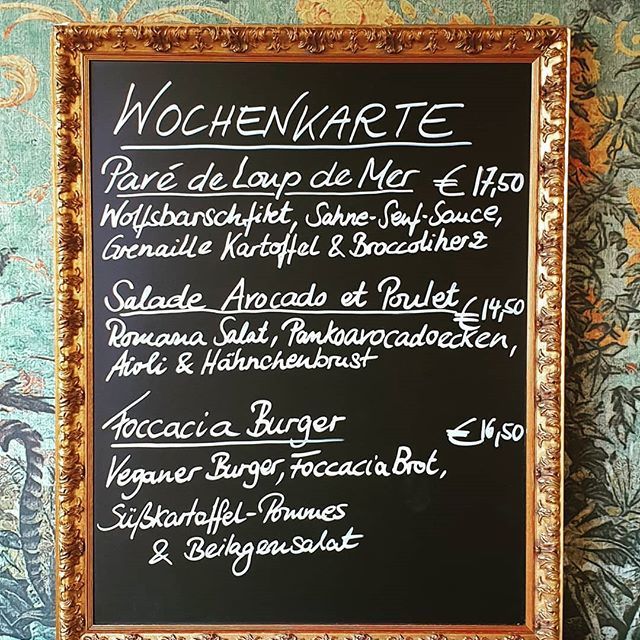 WOCHENKARTE
Pavé de Loup de Mer € 17,50
Wolfsbarschfilet, Sahne-Senf-Sauce,
Grenaille Kartoffel & Broccoliherz
Salade Avocado et Poulet € 14,50
Romana Salat, Pankoavocadoecken,
Aioli & Hähnchenbrust
Foccacia Burger € 16,50
Veganer Burger, Foccacia Brot,
Süßkartoffel-Pommes
& Beilagensalat